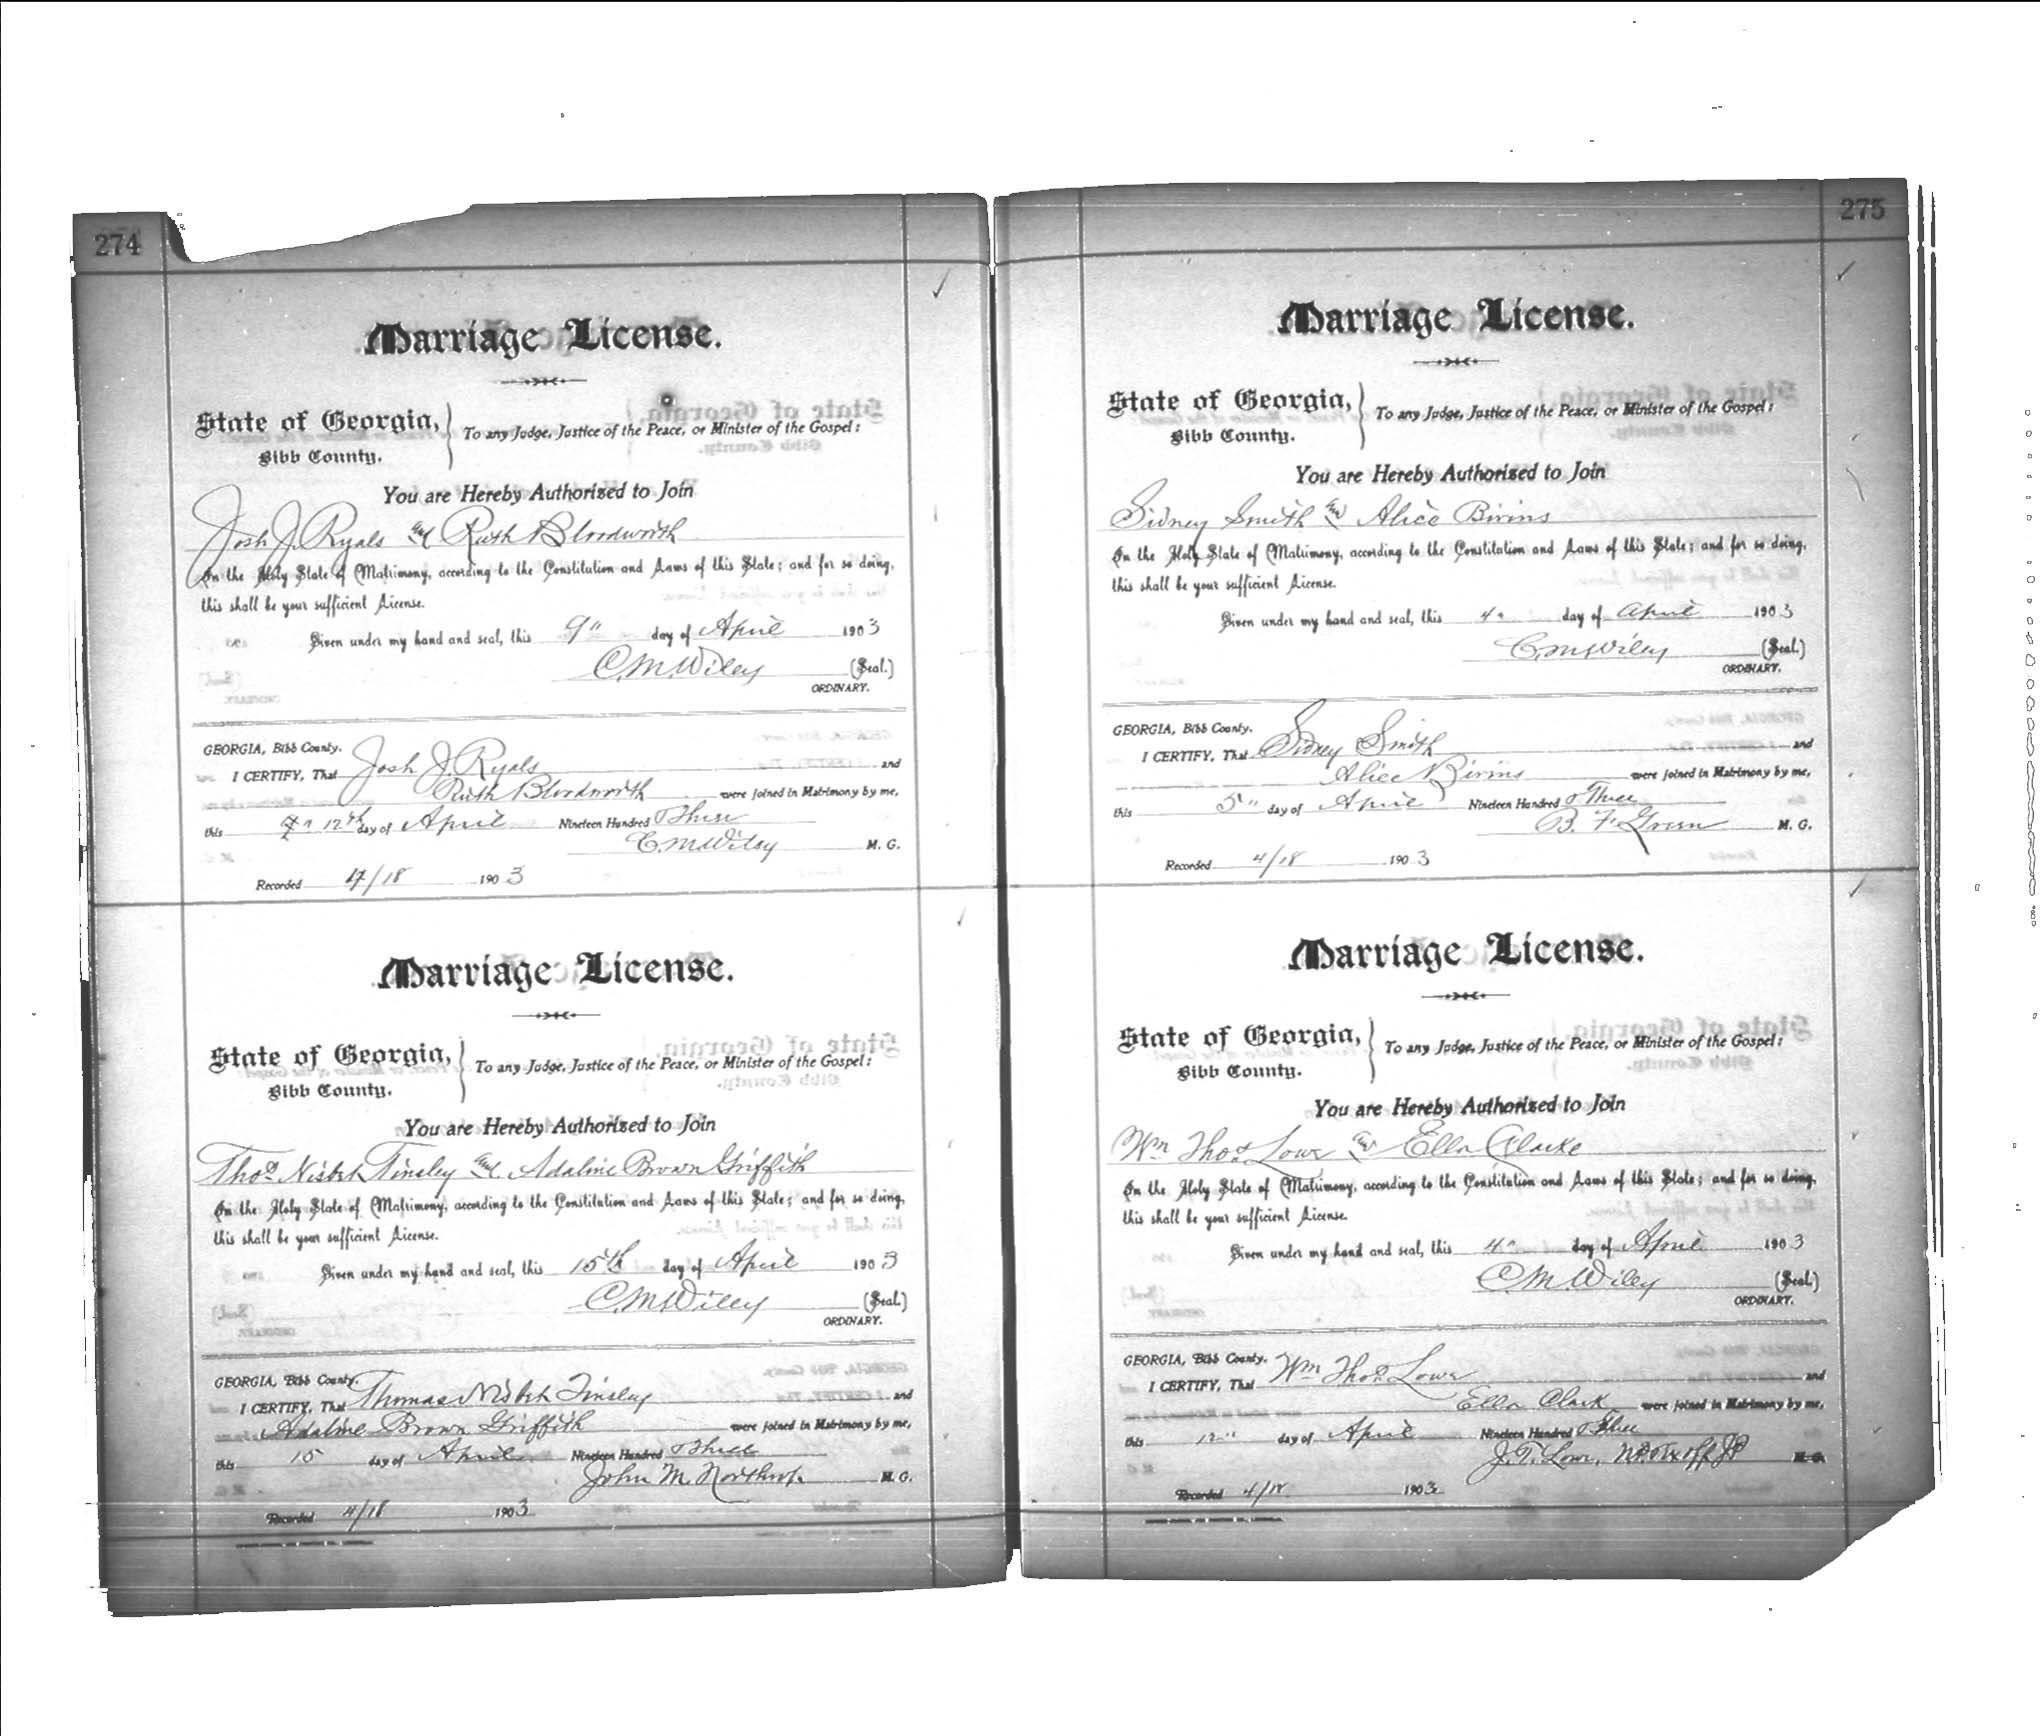 274
Marriage License.
State of Georgia,
Bibb County.
To any Judge, Justice of the Peace, or Minister of the Gospel:
You are Hereby Authorized to Join
Josh J. Ryals and Ruth Bloodworth
In the Holy State of Matrimony, according to the Constitution and Laws of this State; and for so doing,
this shall be your sufficient License.
Given under my hand and seal, this 9" day of April 1903
C. M. Wiley (Seal.)
ORDINARY.
GEORGIA, Bibb County.
I CERTIFY, That Josh J. Ryals and
Ruth Bloodworth were joined in Matrimony by me,
this 12th day of April Nineteen Hundred Three
C. M. Wiley M. G.
Recorded 4/18 1903
Marriage License.
State of Georgia,
Bibb County.
To any Judge, Justice of the Peace, or Minister of the Gospel:
You are Hereby Authorized to Join
Thos Nisbet Tinsley and Adaline Brown Griffith
In the Holy State of Matrimony, according to the Constitution and Laws of this State; and for so doing,
this shall be your sufficient License.
Given under my hand and seal, this 15th day of April 1903
C. M. Wiley (Seal.)
ORDINARY.
GEORGIA, Bibb County.
I CERTIFY, That Thomas Nisbet Tinsley and
Adaline Brown Griffith were joined in Matrimony by me,
this 15 day of April Nineteen Hundred Three
John M. Northrop M. G.
Recorded 4/18 1903
275
Marriage License.
State of Georgia,
Bibb County.
To any Judge, Justice of the Peace, or Minister of the Gospel:
You are Hereby Authorized to Join
Sidney Smith and Alice Birins
In the Holy State of Matrimony, according to the Constitution and Laws of this State; and for so doing,
this shall be your sufficient License.
Given under my hand and seal, this 4" day of April 1903
C. M. Wiley (Seal.)
ORDINARY.
GEORGIA, Bibb County.
I CERTIFY, That Sidney Smith and
Alice Birins were joined in Matrimony by me,
this 5" day of April Nineteen Hundred Three
B. F. Green M. G.
Recorded 4/18 1903
Marriage License.
State of Georgia,
Bibb County.
To any Judge, Justice of the Peace, or Minister of the Gospel:
You are Hereby Authorized to Join
Wm Thos Lowe and Ella Clarke
In the Holy State of Matrimony, according to the Constitution and Laws of this State; and for so doing,
this shall be your sufficient License.
Given under my hand and seal, this 4" day of April 1903
C. M. Wiley (Seal.)
ORDINARY.
GEORGIA, Bibb County.
I CERTIFY, That Wm Thos Lowe and
Ella Clark were joined in Matrimony by me,
this 12" day of April Nineteen Hundred Three
J. T. Lowe, M. G.
Recorded 4/18 1903